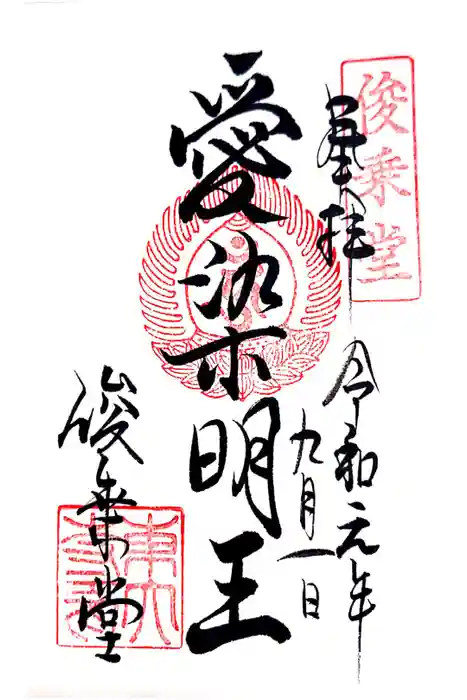 俊乗堂
奉拝
令和元年
九月一日
愛染明王
俊乗堂
東大